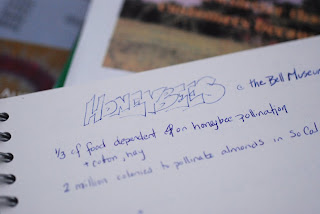 HONEYBEES @ the Bell Museum
1/3 of food dependent on honeybee pollination
+ cotton, hay
2 million colonies to pollinate almonds in SoCal